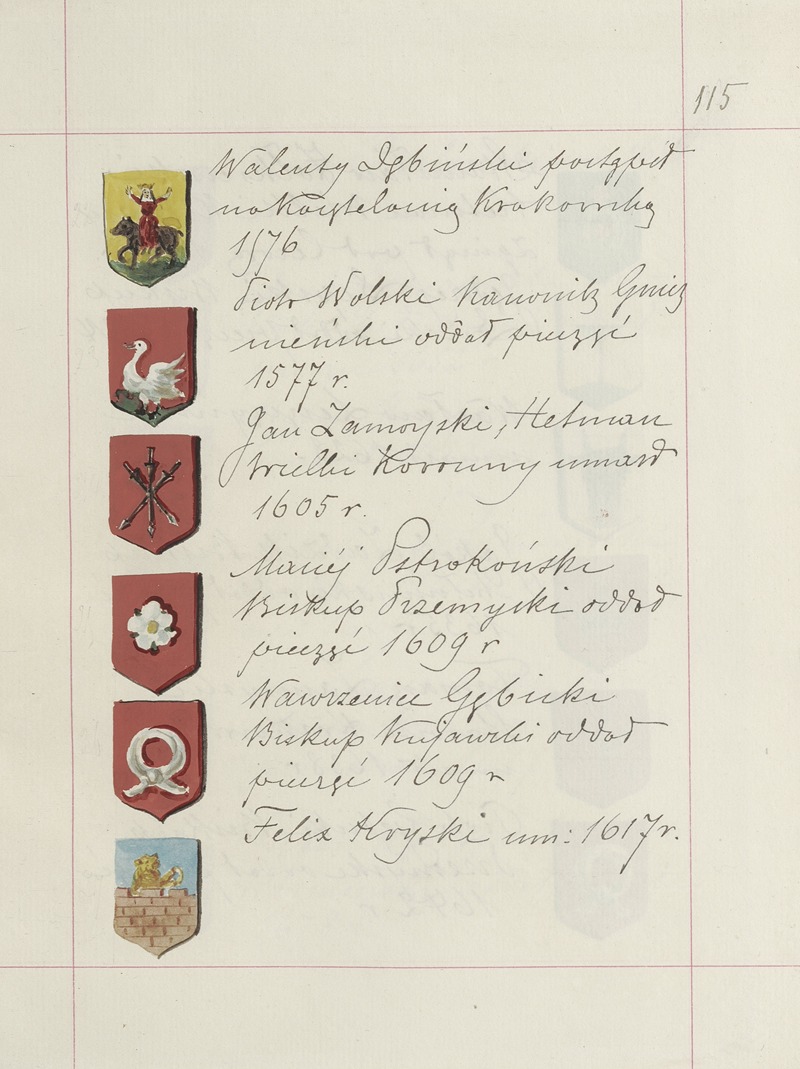 115
Walenty Dębiński postąpił
na Kasztelanią Krakowską
1576
Piotr Wolski Kanonik Gnieź
nieński oddał pieczęć
1577 r.
Jan Zamoyski, Hetman
Wielki Koronny umarł
1605 r.
Maciéj Pstrokoński
Biskup Przemyski oddał
pieczęć 1609 r
Wawrzeniec Gębicki
Biskup Kujawski oddał
pieczęć 1609 r
Felix Kryski um: 1617 r.